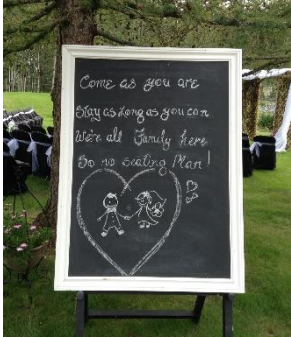 Come as you are
Stay as long as you can
We're all Family here
So no seating Plan!